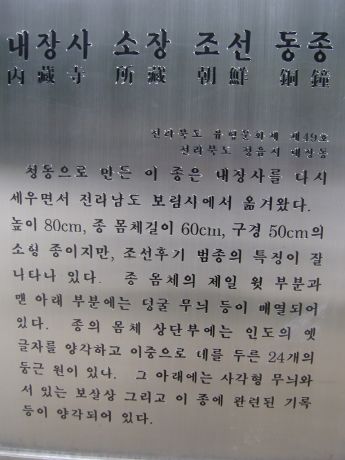 내장사 소장 조선 동종
內藏寺 所藏 朝鮮 銅鐘
전라북도 유형문화재 제49호
전라북도 정읍시 내장동
청동으로 만든 이 종은 내장사를 다시
세우면서 전라남도 보림사에서 옮겨왔다.
높이 80cm, 종 몸체길이 60cm, 구경 50cm의
소형 종이지만, 조선후기 범종의 특징이 잘
나타나 있다. 종 몸체의 제일 윗 부분과
맨 아래 부분에는 덩굴 무늬 등이 배열되어
있다. 종의 몸체 상단부에는 인도의 옛
글자를 양각하고 이중으로 네를 두른 24개의
둥근 원이 있나. 그 아래에는 사각형 무늬와
서 있는 보살상 그리고 이 종에 관련된 기록
등이 양각되어 있다.